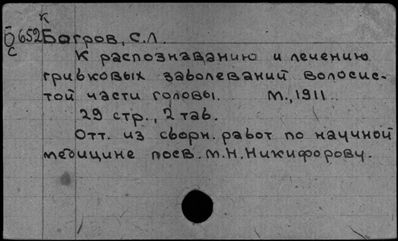 к
ö 652 Багров, С.Л.
с
К распознаванию и лечению
грибковых заболеваний волосис-
той части головы. М., 1911.
29 стр., 2 таб.
Отт. из сборн. работ по научной
медицине посв. М.Н.Никифорову.